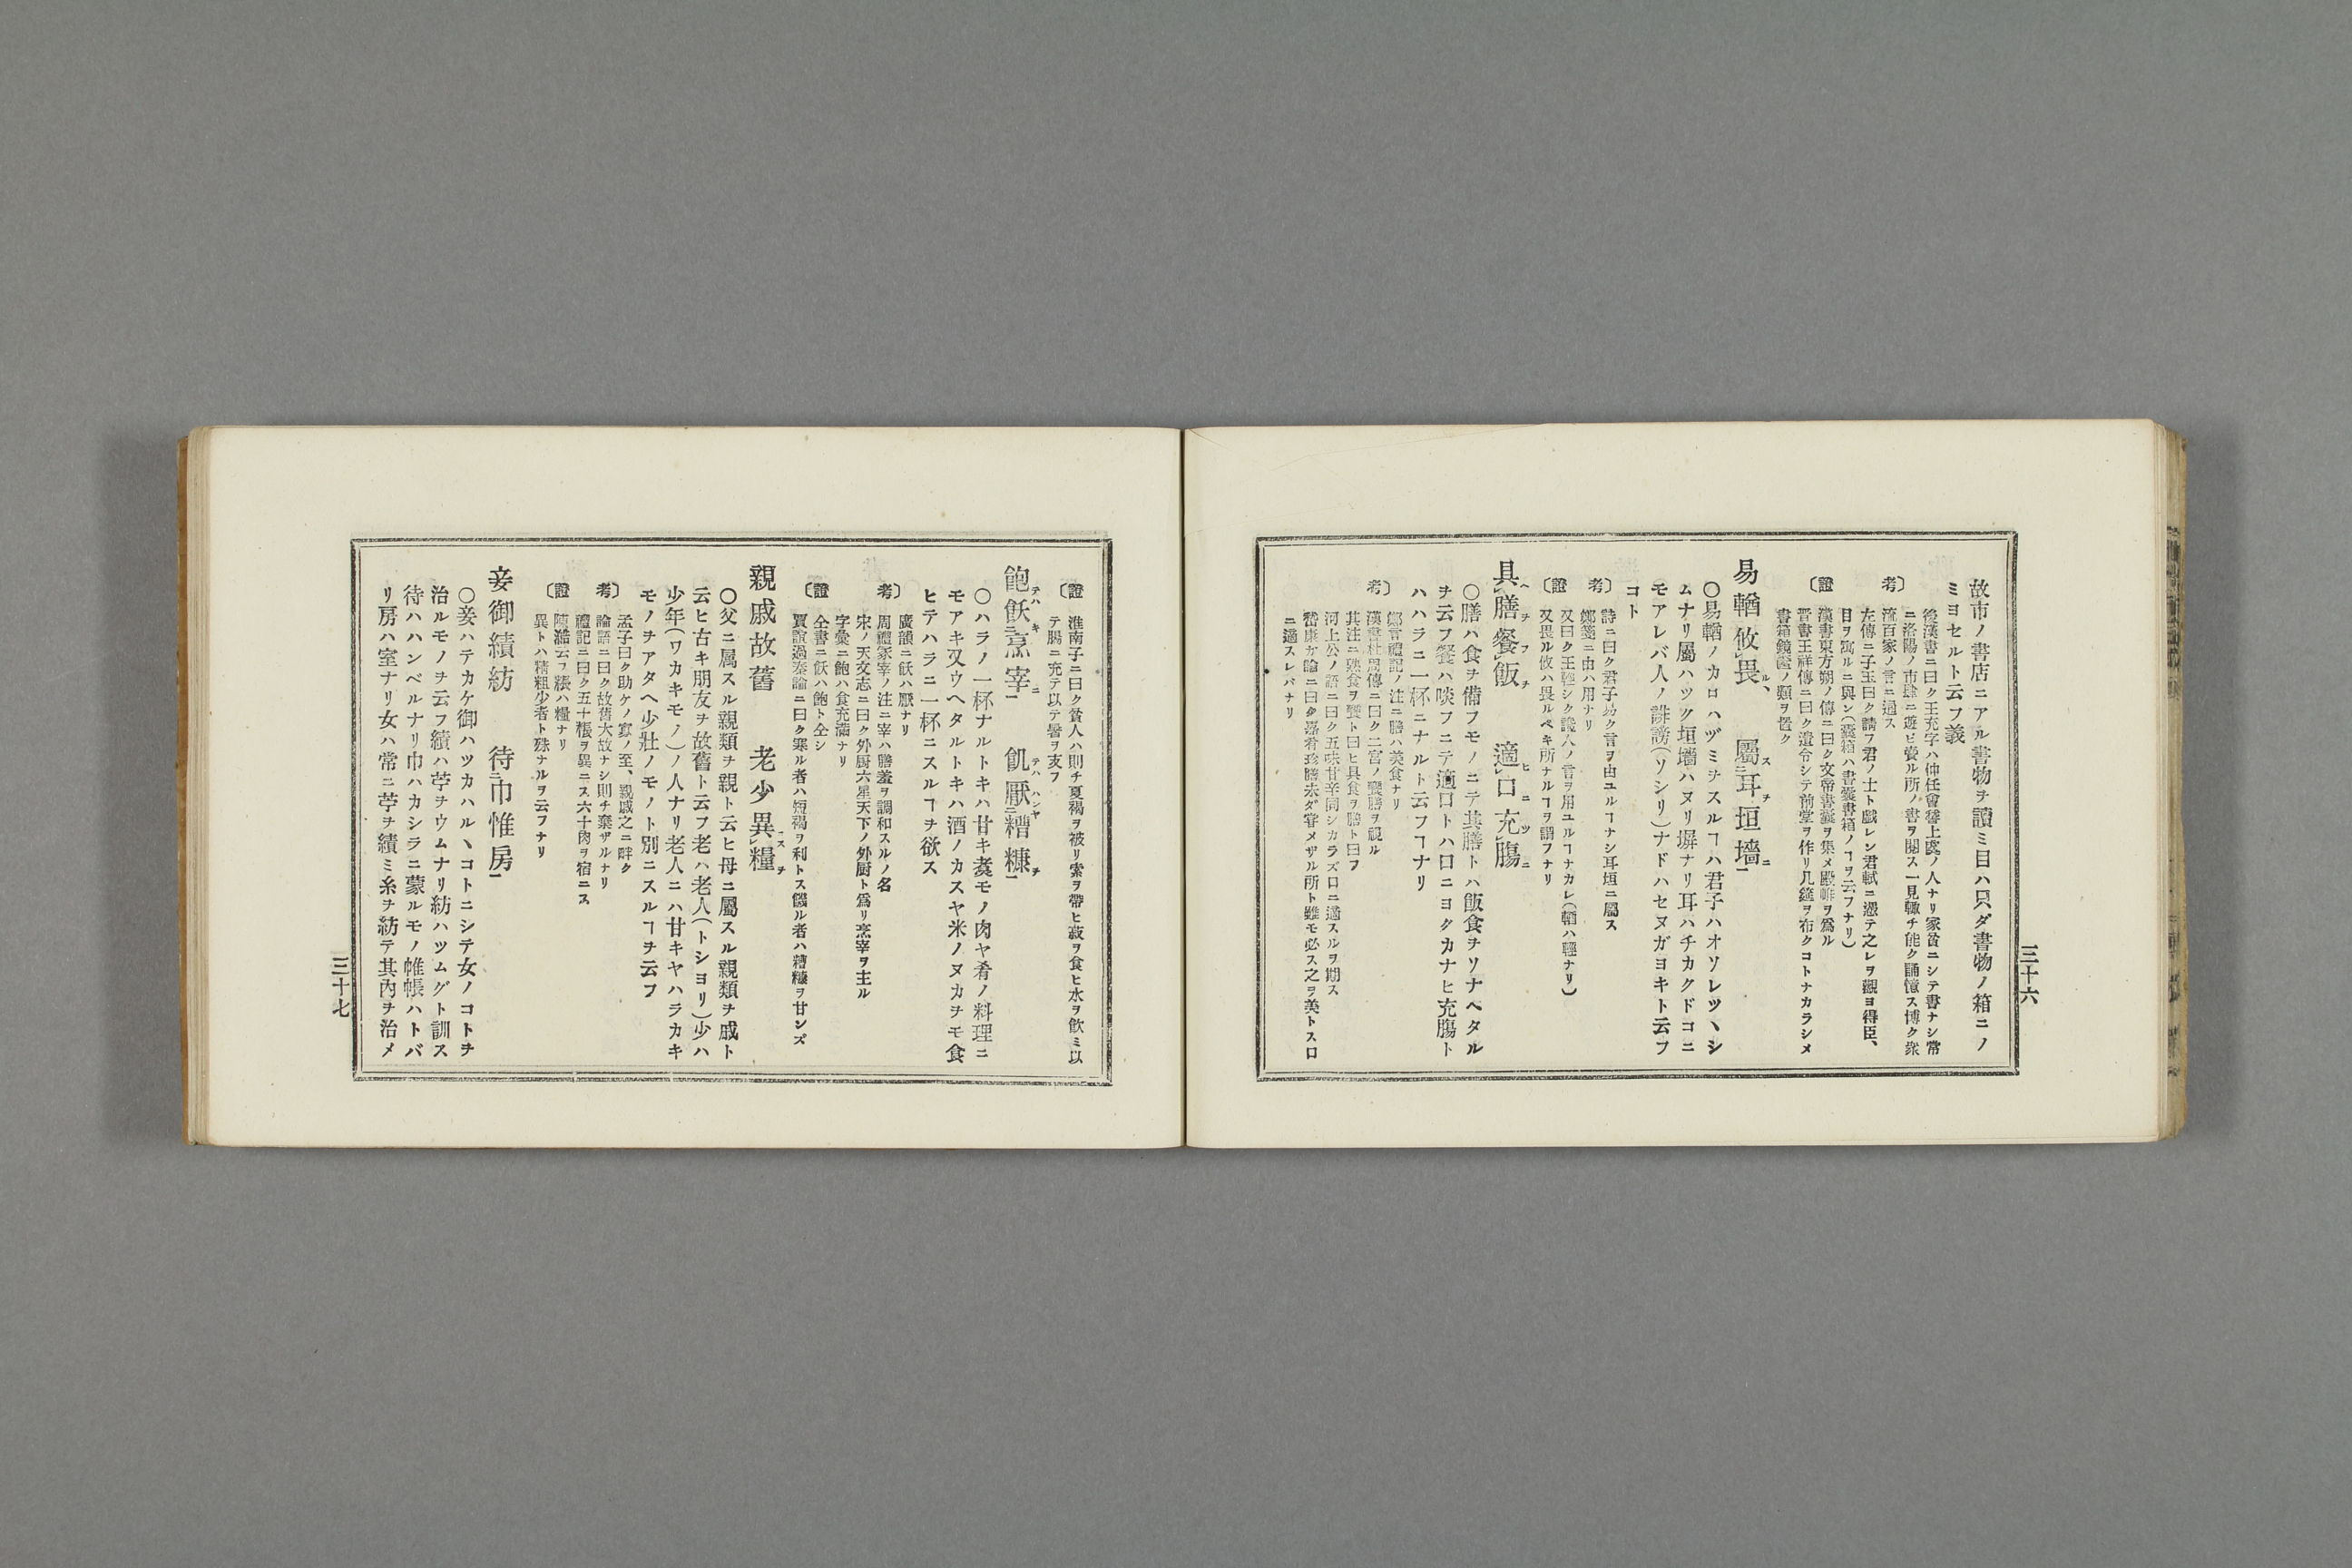 故市ノ書店ニアル書物ヲ讀ミ目ハ只ダ書物ノ箱ニノ
ミヨセルト云フ義
後漢書ニ曰ク王充字ハ仲任會稽上虞ノ人ナリ家貧ニシテ書ナシ常
ニ洛陽ノ市肆ニ遊ビ賣ル所ノ書ヲ閱ス一見輙チ能ク誦憶ス博ク衆
〔考〕流百家ノ言ニ通ス
左傳ニ子玉曰ク請フ君ノ士ト戯レン君軾ニ憑テ之レヲ觀ヨ得臣、
目ヲ寓ルニ與ン(囊箱ハ書囊書箱ノヿヲ云フナリ)
〔證〕漢書東方朔ノ傳ニ曰ク文帝書囊ヲ集メ殿帷ヲ爲ル
晋書王祥傳ニ曰ク遺令シテ前堂ヲ作リ几筵ヲ布クコトナカラシメ
書箱鏡奩ノ類ヲ置ク
易輶攸畏、 屬耳垣墻
○易輶ノカロハヅミヲスルヿハ君子ハオソレツヽシ
ムナリ屬ハツク垣墻ハヌリ塀ナリ耳ハチカクドコニ
モアレバ人ノ誹謗(ソシリ)ナドハセヌガヨキト云フ
コト
〔考〕詩ニ曰ク君子易ク言ヲ由ユルヿナシ耳垣ニ屬ス
鄭箋ニ由ハ用ナリ
〔證〕又曰ク王輕シク讒人ノ言ヲ用ユルヿナカレ(輶ハ輕ナリ)
又畏ル攸ハ畏ルベキ所ナルヿヲ謂フナリ
具膳餐飯 適口充膓
○膳ハ食ヲ備フモノニテ其膳トハ飯食ヲソナヘタル
ヲ云フ餐ハ啖フニテ適口トハ口ニヨクカナヒ充膓ト
ハハラニ一杯ニナルト云フヿナリ
鄭言禮記ノ注ニ膳ハ美食ナリ
〔考〕漢書杜周傳ニ曰ク二宮ノ饔膳ヲ視ル
其注ニ熟食ヲ饔ト曰ヒ具食ヲ膳ト曰フ
河上公ノ語ニ曰ク五味甘辛同シカラズ口ニ適スルヲ期ス
嵆康カ論ニ曰ク嘉肴珍膳未ダ甞メザル所ト雖モ必ス之ヲ美トス口
ニ適スレバナリ
三十六
〔證〕淮南子ニ曰ク貧人ハ則チ夏褐ヲ被リ索ヲ帶ヒ菽ヲ食ヒ水ヲ飮ミ以
テ腸ニ充テ以テ暑ヲ支フ
飽飫烹宰 飢厭糟糠
○ハラノ一杯ナルトキハ甘キ羹モノ肉ヤ肴ノ料理ニ
モアキ又ウヘタルトキハ酒ノカスヤ米ノヌカヲモ食
ヒテハラニ一杯ニスルヿヲ欲ス
廣韻ニ飫ハ厭ナリ
〔考〕周禮冢宰ノ注ニ宰ハ膳羞ヲ調和スルノ名
宋ノ天文志ニ曰ク外厨六星天下ノ外厨ト爲リ烹宰ヲ主ル
字彙ニ飽ハ食充滿ナリ
〔證〕仝書ニ飫ハ飽ト仝シ
賈誼過秦論ニ曰ク寒ル者ハ短褐ヲ利トス饑ル者ハ糟糠ヲ甘シズ
親戚故舊 老少異糧
○父ニ属スル親類ヲ親ト云ヒ母ニ屬スル親類ヲ戚ト
云ヒ古キ朋友ヲ故舊ト云フ老ハ老人(トシヨリ)少ハ
少年(ワカキモノ)ノ人ナリ老人ニハ甘キヤハラカキ
モノヲアタヘ少壯ノモノト別ニスルヿヲ云フ
孟子曰ク助ケノ寡ノ至、親戚之ニ畔ク
〔考〕論語ニ曰ク故舊大故ナシ則チ棄ザルナリ
禮記ニ曰ク五十粻ヲ異ニス六十肉ヲ宿ニス
〔證〕陳澔云フ粻ハ糧ナリ
異トハ精粗少者ト殊ナルヲ云フナリ
妾御績紡 待巾帷房
○妾ハテカケ御ハツカハルヽコトニシテ女ノコトヲ
治ルモノヲ云フ績ハ苧ヲウムナリ紡ハツムグト訓ス
待ハハンベルナリ巾ハカシラニ蒙ルモノ帷帳ハトバ
リ房ハ室ナリ女ハ常ニ苧ヲ績ミ糸ヲ紡テ其內ヲ治メ
三十七